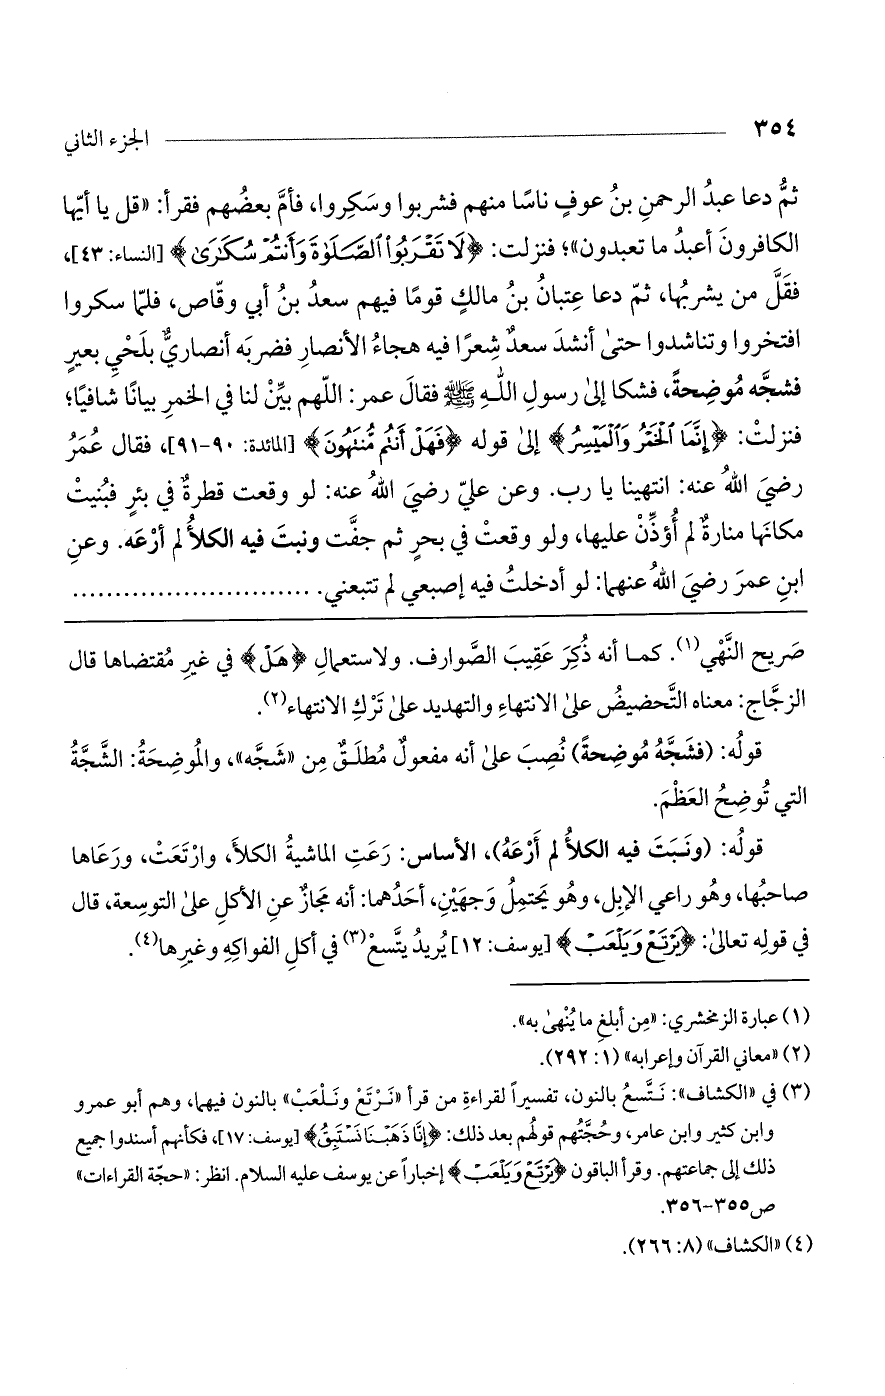 ٣٥٤ الجزء الثاني
ثمُّ دعا عبدُ الرحمنِ بنُ عوفٍ ناسًا منهم فشربوا وسَكِروا، فأمَّ بعضُهم فقرأ: «قل يا أيّها
الكافرونَ أعبدُ ما تعبدون»؛ فنزلت: ﴿لَا تَقْرَبُوا۟ ٱلصَّلَوٰةَ وَأَنتُمْ سُكَـٰرَىٰ﴾ [النساء: ٤٣]،
فقَلَّ من يشربُها، ثمّ دعا عِتبانُ بنُ مالكٍ قومًا فيهم سعدُ بنُ أبي وقّاص، فلمّا سكروا
افتخروا وتناشدوا حتىٰ أنشدَ سعدٌ شِعرًا فيه هجاءُ الأنصارِ فضربَه أنصاريٌّ بلَحْيِ بعيرٍ
فشجَّه مُوضِحةً، فشكا إلىٰ رسولِ اللهِ ﷺ فقالَ عمر: اللّهم بيِّنْ لنا في الخمرِ بيانًا شافيًا؛
فنزلتْ: ﴿إِنَّمَا ٱلْخَمْرُ وَٱلْمَيْسِرُ﴾ إلىٰ قوله ﴿فَهَلْ أَنتُم مُّنتَهُونَ﴾ [المائدة: ٩٠-٩١]، فقال عُمَرُ
رضيَ اللهُ عنه: انتهينا يا رب. وعن عليّ رضيَ اللهُ عنه: لو وقعت قطرةٌ في بئرٍ فبُنيتْ
مكانَها منارةٌ لم أُؤذِّنْ عليها، ولو وقعتْ في بحرٍ ثم جفَّت ونبتَ فيه الكلأُ لم أرْعَه. وعنِ
ابنِ عمرَ رضيَ اللهُ عنهما: لو أدخلتُ فيه إصبعي لم تتبعني. ............................
صَريح النَّهْي(١). كمـا أنه ذُكِرَ عَقِيبَ الصَّوارف. ولاستعمالِ ﴿هَلْ﴾ في غيرِ مُقتضاها قال
الزجَّاج: معناه التَّحضيضُ علىٰ الانتهاءِ والتهديد علىٰ تَرْكِ الانتهاء(٢).
قولُه: (فشَجَّهُ مُوضِحةً) نُصِبَ علىٰ أنه مفعولٌ مُطلَقٌ مِن «شَجَّه»، والمُوضِحَةُ: الشَّجَّةُ
التي تُوضِحُ العَظْمَ.
قولُه: (ونَبَتَ فيه الكلأُ لم أَرْعَهُ)، الأساس: رَعَتِ الماشيةُ الكلأَ، وارْتَعَتْ، ورَعَاها
صاحبُها، وهُو راعي الإبِل، وهُو يَحتمِلُ وَجهَيْنِ، أحَدُهما: أنه مَجازٌ عنِ الأكلِ علىٰ التوسِعة، قال
في قولِه تعالىٰ: ﴿يَرْتَعْ وَيَلْعَبْ﴾ [يوسف: ١٢] يُريدُ يتَّسعْ(٣) في أكلِ الفواكِهِ وغيرِها(٤).
(١) عبارة الزمخشري: «مِن أبلغِ ما يُنْهىٰ به».
(٢) «معاني القرآن وإعرابه» (١: ٢٩٢).
(٣) في «الكشاف»: نَتَّسعُ بالنون، تفسيراً لقراءةِ من قرأ «نَرْتَعْ ونَلْعَبْ» بالنون فيهما، وهم أبو عمرو
وابن كثير وابن عامر، وحُجَّتُهم قولُهم بعد ذلك: ﴿إِنَّا ذَهَبْنَا نَسْتَبِقُ﴾ [يوسف: ١٧]، فكأنهم أسندوا جميع
ذلك إلى جماعتهم. وقرأ الباقون ﴿يَرْتَعْ وَيَلْعَبْ﴾ إخباراً عن يوسف عليه السلام. انظر: «حجّة القراءات»
ص٣٥٥-٣٥٦.
(٤) «الكشاف» (٨: ٢٦٦).